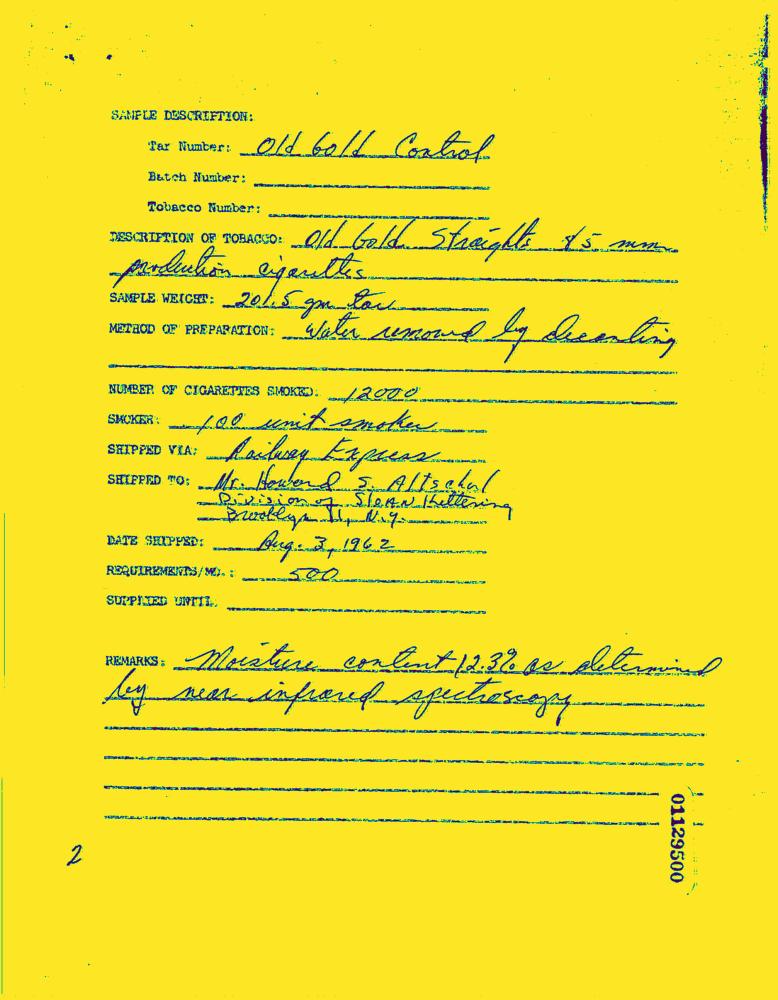 SAMPLE DESCRIPTION:
Tar Number: Old Gold Control
Batch Number:
Tobacco Number:
DESCRIPTION OF TOBACCO: Old Gold Straights 85 mm
production cigarettes
SAMPLE WEIGHT: 201.5 gm tar
METHOD OF PREPARATION: Water removed by decanting
NUMBER OF CIGARETTES SMOKED: 12000
SMOKER: 100 unit smoker
SHIPPED VIA: Railway Express
SHIPPED TO: Mr. Howard S. Altschul
Division of Sloan Kettering
Brooklyn 11, N.Y.
DATE SHIPPED: Aug. 3, 1962
REQUIREMENTS/MO.: 500
SUPPLIED UNTIL
REMARKS: Moisture content 12.3% as determined
by near infrared spectroscopy
01129500
2